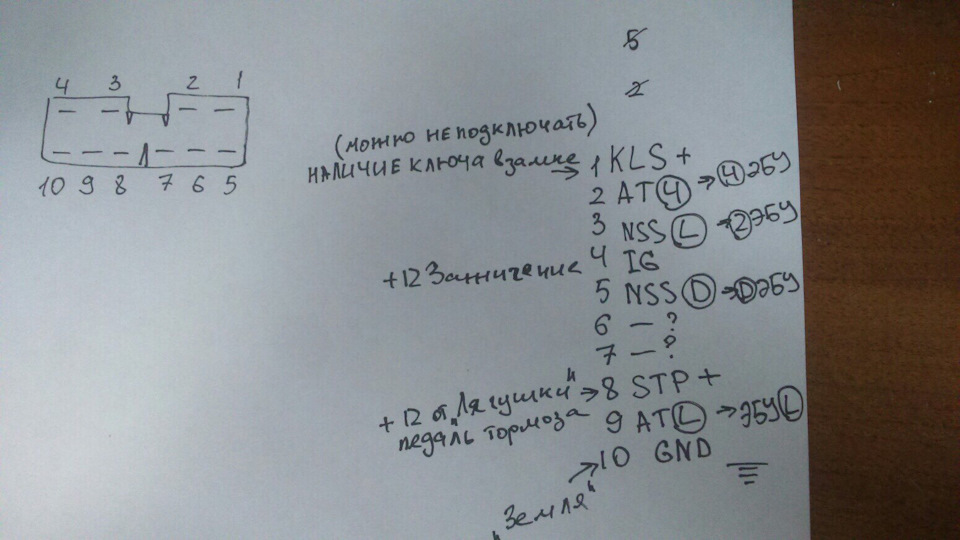 5
2
4 3 2 1
10 9 8 7 6 5
(можно не подключать)
НАЛИЧИЕ КЛЮЧА в замке → 1 KLS +
2 AT (4) → (4) ЭБУ
3 NSS (L) → (2) ЭБУ
+12 Зажигание 4 IG
5 NSS (D) → (D) ЭБУ
6 — ?
7 — ?
+12 от "Лягушки" → 8 STP +
педаль тормоза 9 AT (L) → ЭБУ (L)
→ 10 GND
"Земля"